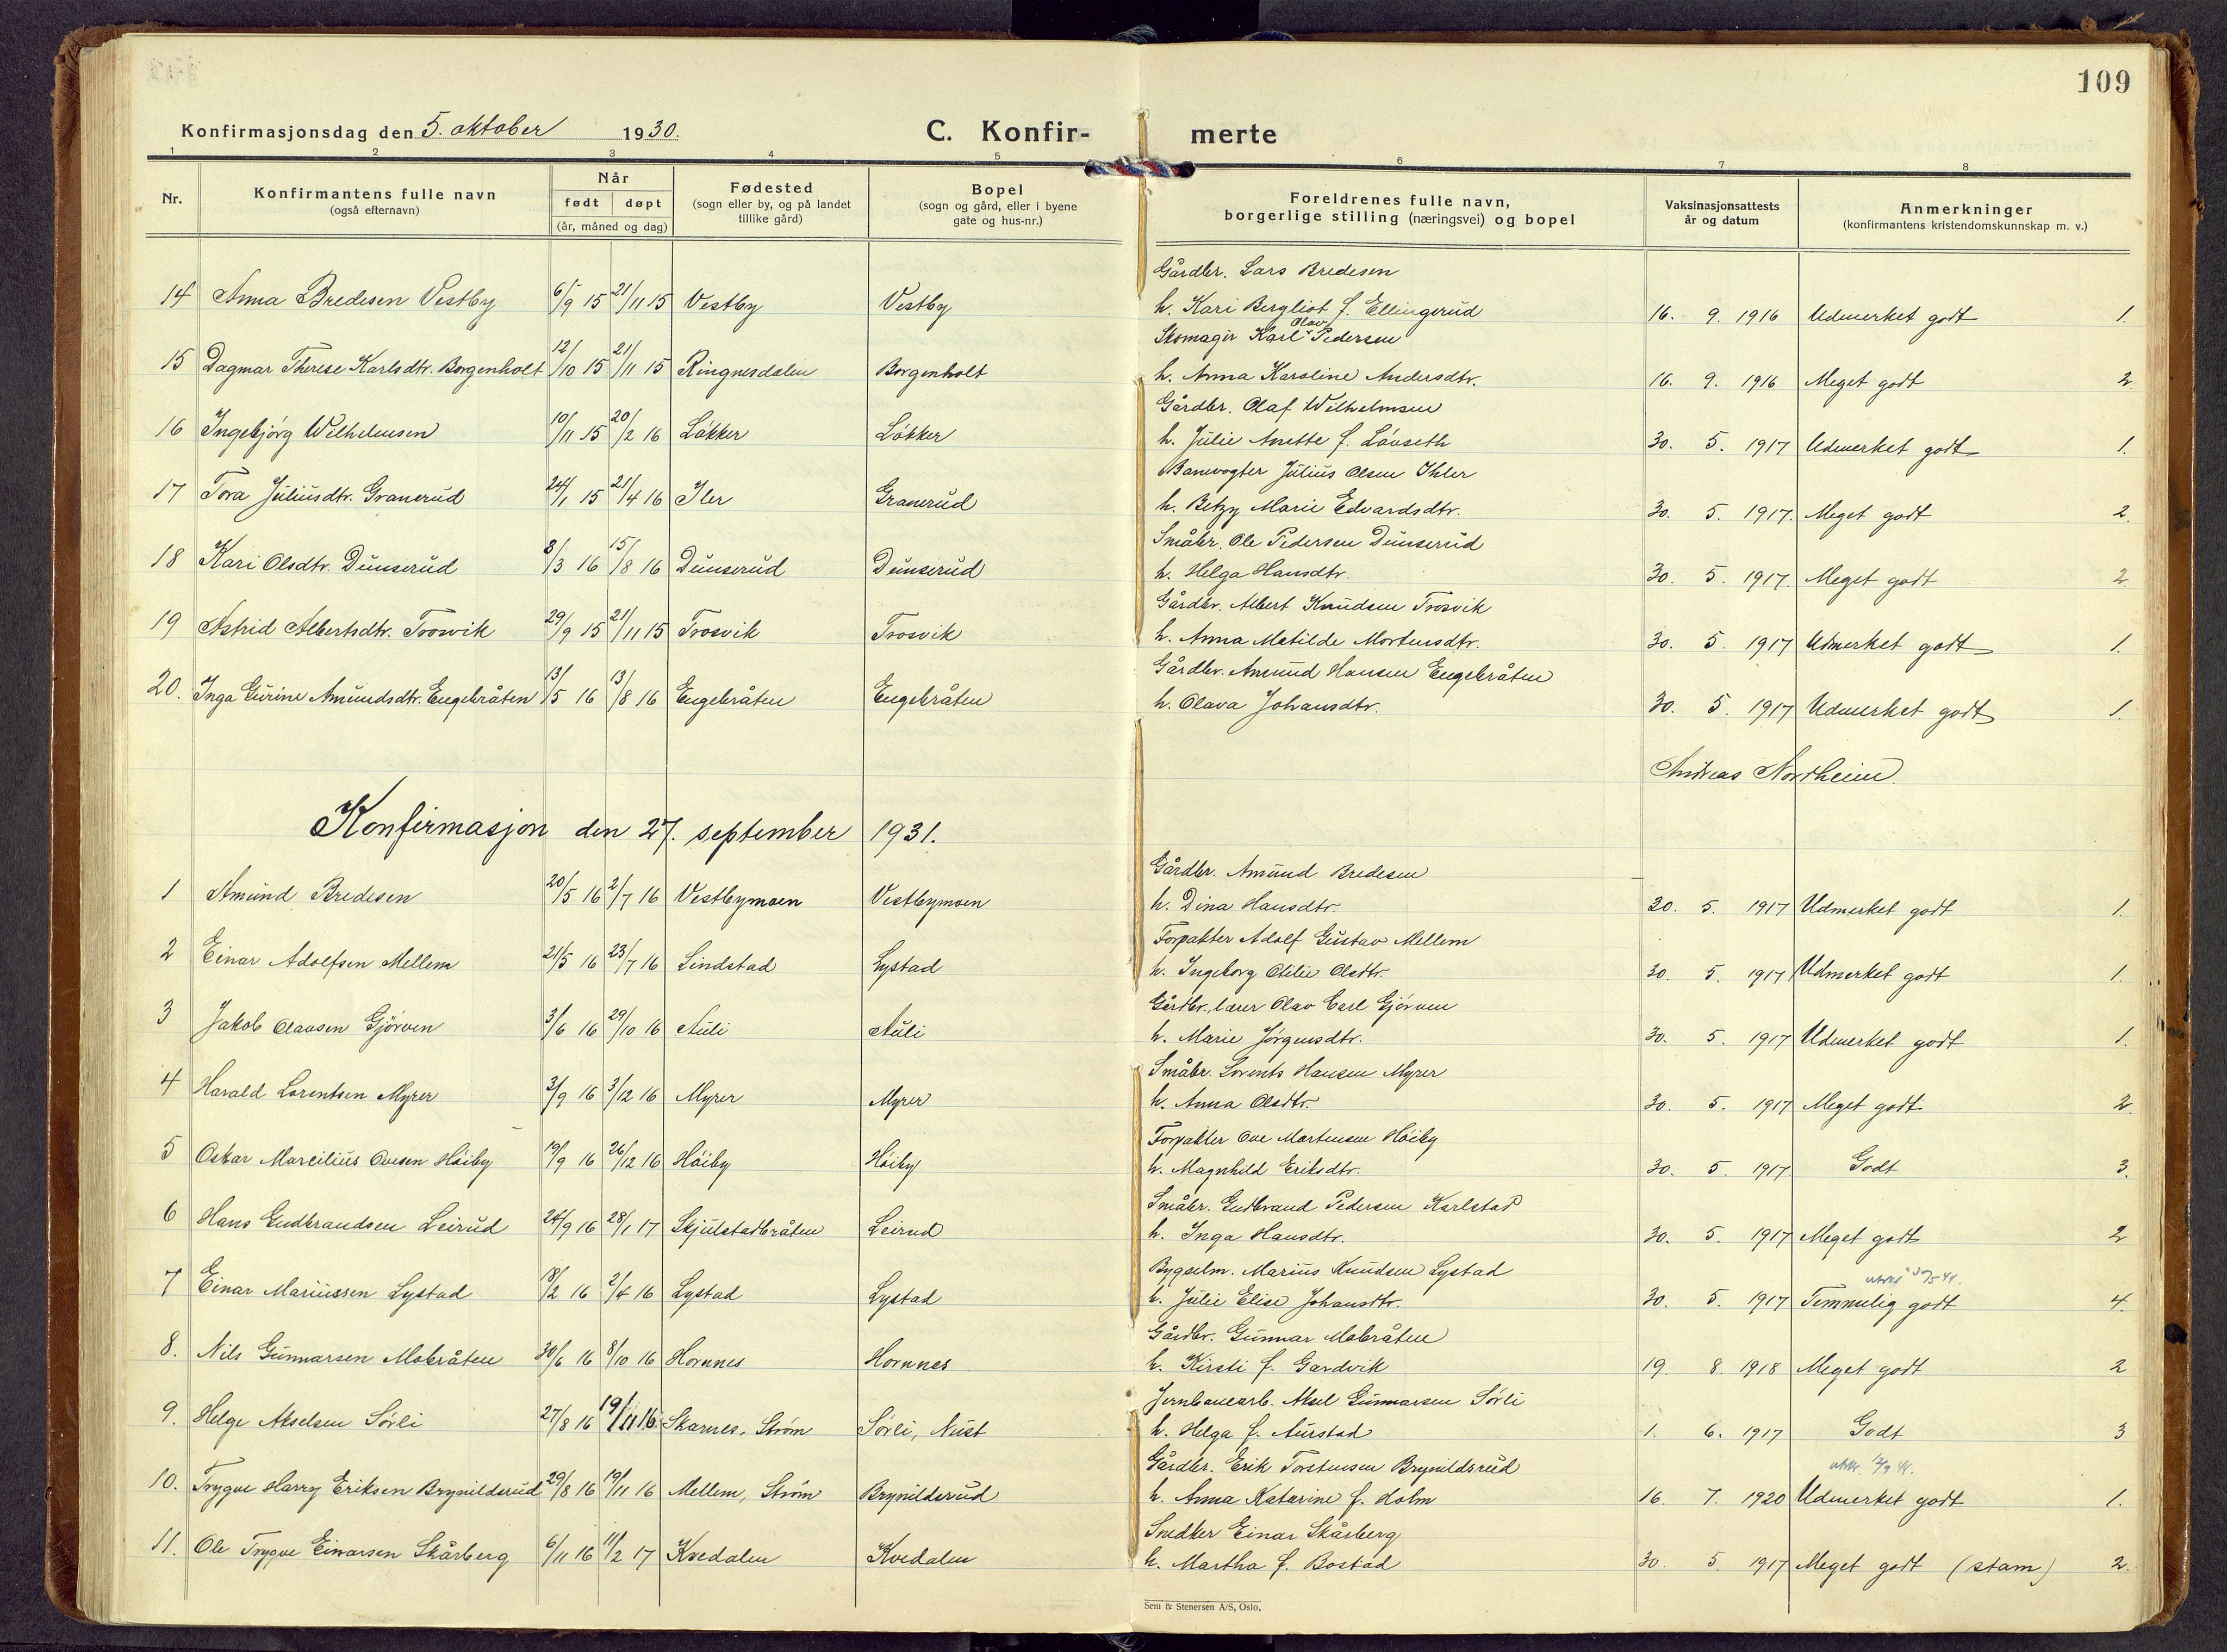 109
Konfirmasjonsdag den 5. oktober 1930.
C. Konfir- merte
1 2 3 4 5 6 7 8
Nr. Konfirmantens fulle navn (også efternavn) Når født døpt (år, måned og dag) Fødested (sogn eller by, og på landet tillike gård) Bopel (sogn og gård, eller i byene gate og hus-nr.) Foreldrenes fulle navn, borgerlige stilling (næringsvei) og bopel Vaksinasjonsattests år og datum Anmerkninger (konfirmantens kristendomskunnskap m. v.)
Gårdbr. Lars Bredesen
14 Anna Bredesen Vestby 6/9 15 21/11 15 Vestby Vestby h. Kari Bergliot f. Ellingerud 16. 9. 1916 Udmerket godt 1.
Skomager Karl Olav Pedersen
15 Dagmar Therese Karlsdtr. Borgenholt 12/10 15 21/11 15 Ringnesdalen Borgenholt h. Anna Karoline Andersdtr. 16. 9. 1916 Meget godt 2
Gårdbr. Olaf Wilhelmsen
16 Ingebjørg Wilhelmsen 10/11 15 20/2 16 Løkker Løkker h. Julie Anette f. Løvseth 30. 5. 1917 Udmerket godt 1.
Banevogter Julius Olsen Ihler
17 Tora Juliusdtr. Granerud 24/1 15 21/4 16 Iler Granerud h. Betzy Marie Edvardsdtr. 30. 5. 1917. Meget godt 2.
Småbr. Ole Pedersen Dunserud
18 Kari Olsdtr. Dunserud 8/3 16 15/8 16 Dunserud Dunserud h. Helga Hansdtr. 30. 5. 1917. Meget godt 2.
Gårdbr. Albert Knudsen Trosvik
19 Astrid Albertsdtr. Trosvik 29/9 15 21/11 15 Trosvik Trosvik h. Anna Matilde Mortensdtr. 30. 5. 1917 Udmerket godt 1.
Gårdbr. Amund Hansen Engebråten
20. Inga Gurine Amundsdtr. Engebråten 13/5 16 13/8 16 Engebråten Engebråten h. Olava Johansdtr. 30. 5. 1917 Udmerket godt 1.
Andreas Northeim.
Konfirmasjon den 27. september 1931.
Gårdbr. Amund Bredesen
1 Amund Bredesen 20/5 16 2/7 16 Vestbymoen Vestbymoen h. Dina Hansdtr. 20. 5. 1917 Udmerket godt 1.
Forpakter Adolf Gustav Mellem
2 Einar Adolfsen Mellem 21/5 16 23/7 16 Lindstad Lystad h. Ingeborg Otilie Olsdtr. 30. 5. 1917 Udmerket godt 1.
Gårdbr., lærer Olav Earl Gjørven
3 Jakob Olavsen Gjørven 3/6 16 29/10 16 Auli Auli h. Marie Jørgensdtr. 30. 5. 1917 Udmerket godt 1.
Småbr. Lorents Hansen Myrer
4 Harald Lorentsen Myrer 3/9 16 3/12 16 Myrer Myrer h. Anna Olsdtr. 30. 5. 1917 Meget godt 2
Forpakter Ove Martensen Høiby
5 Oskar Marcilius Ovesen Høiby 19/9 16 26/12 16 Høiby Høiby h. Magnhild Eriksdtr. 30. 5. 1917 Godt 3.
Småbr. Gudbrand Pedersen Karlstad
6 Hans Gudbrandsen Leirud 24/9 16 28/1 17 Skjulstadbråten Leirud h. Inga Hansdtr. 30. 5. 1917 Meget godt 2
Bygselm. Marius Knudsen Lystad
7 Einar Mariussen Lystad 18/2 16 2/4 16 Lystad Lystad h. Julie Elise Johansdtr. 30. 5. 1917 Temmelig godt 4.
Gårdbr. Gunnar Mobråten
8. Nils Gunnarsen Mobråten 30/6 16 8/10 16 Hornnes Hornnes h. Kirsti f. Gardvik 19. 8. 1918 Meget godt 2
Jernbanearb. Aksel Gunnarsen Sørli
9. Helge Akselsen Sørli 27/8 16 19/11 16 Skarnes, Strøm Sørli, Nust h. Helga f. Aurstad 1. 6. 1917 Godt 3
Gårdbr. Erik Torstensen Brynildsrud
10. Trygve Harry Eriksen Brynildsrud 29/8 16 19/11 16 Mellem, Strøm Brynildsrud h. Anna Katarine f. Holm 16. 7. 1920 Udmerket godt 1.
Snedker Einar Skårberg
11. Ole Trygve Einarsen Skårberg 6/11 16 11/2 17 Kvedalen Kvedalen h. Martha f. Bostad 30. 5. 1917 Meget godt (stam) 2.
Sem & Stenersen A/S, Oslo.